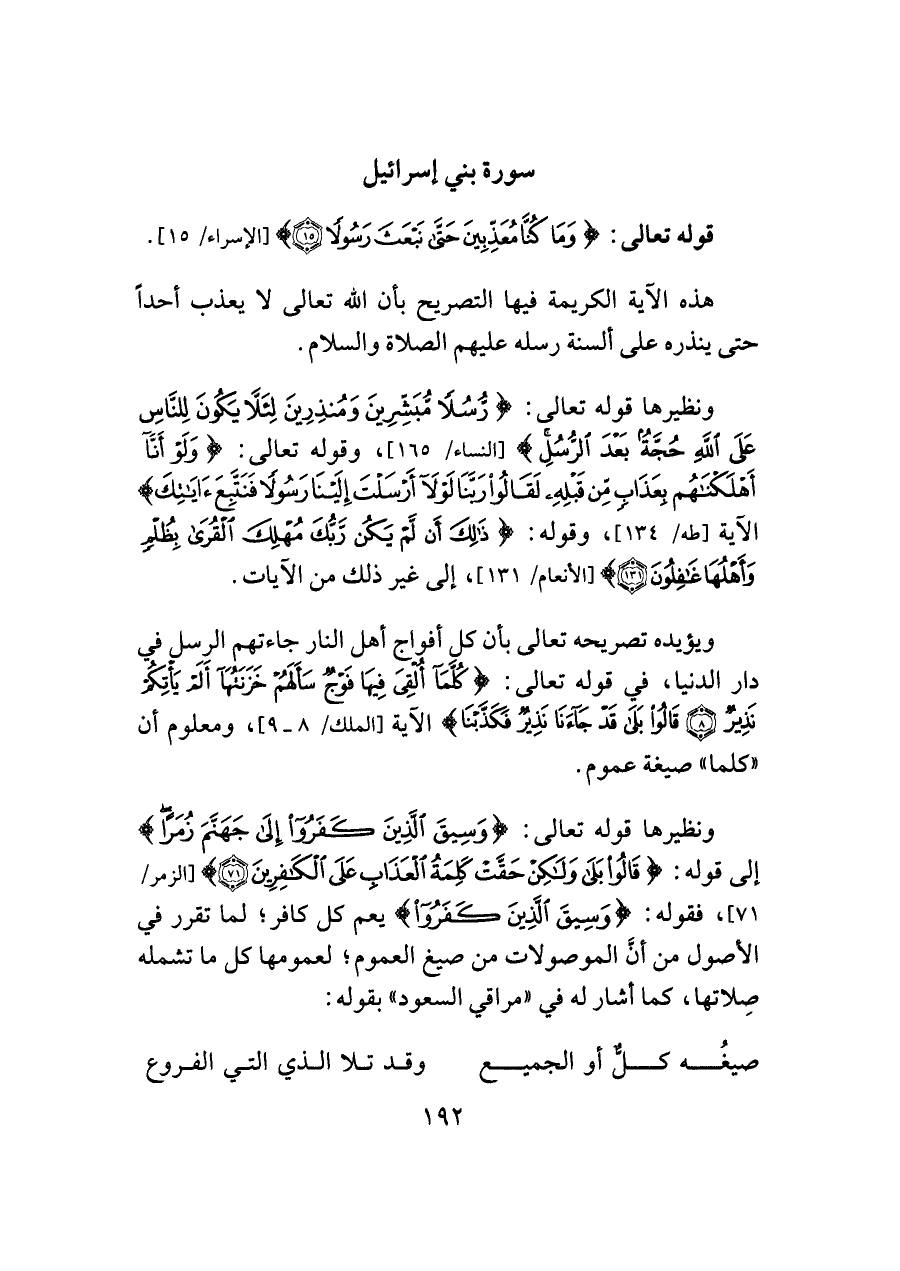 سورة بني إسرائيل
قوله تعالى: ﴿وَمَا كُنَّا مُعَذِّبِينَ حَتَّىٰ نَبْعَثَ رَسُولًا ۝١٥﴾ [الإسراء/ ١٥].
هذه الآية الكريمة فيها التصريح بأن الله تعالى لا يعذب أحداً
حتى ينذره على ألسنة رسله عليهم الصلاة والسلام.
ونظيرها قوله تعالى: ﴿رُّسُلًا مُّبَشِّرِينَ وَمُنذِرِينَ لِئَلَّا يَكُونَ لِلنَّاسِ
عَلَى ٱللَّهِ حُجَّةٌۢ بَعْدَ ٱلرُّسُلِۚ﴾ [النساء/ ١٦٥]، وقوله تعالى: ﴿وَلَوْ أَنَّآ
أَهْلَكْنَٰهُم بِعَذَابٍ مِّن قَبْلِهِۦ لَقَالُوا۟ رَبَّنَا لَوْلَآ أَرْسَلْتَ إِلَيْنَا رَسُولًا فَنَتَّبِعَ ءَايَٰتِكَ﴾
الآية [طه/ ١٣٤]، وقوله: ﴿ذَٰلِكَ أَن لَّمْ يَكُن رَّبُّكَ مُهْلِكَ ٱلْقُرَىٰ بِظُلْمٍ
وَأَهْلُهَا غَٰفِلُونَ ۝١٣١﴾ [الأنعام/ ١٣١]، إلى غير ذلك من الآيات.
ويؤيده تصريحه تعالى بأن كل أفواج أهل النار جاءتهم الرسل في
دار الدنيا، في قوله تعالى: ﴿كُلَّمَآ أُلْقِىَ فِيهَا فَوْجٌ سَأَلَهُمْ خَزَنَتُهَآ أَلَمْ يَأْتِكُمْ
نَذِيرٌ ۝٨ قَالُوا۟ بَلَىٰ قَدْ جَآءَنَا نَذِيرٌ فَكَذَّبْنَا﴾ الآية [الملك/ ٨ ـ ٩]، ومعلوم أن
«كلما» صيغة عموم.
ونظيرها قوله تعالى: ﴿وَسِيقَ ٱلَّذِينَ كَفَرُوٓا۟ إِلَىٰ جَهَنَّمَ زُمَرًاۖ﴾
إلى قوله: ﴿قَالُوا۟ بَلَىٰ وَلَٰكِنْ حَقَّتْ كَلِمَةُ ٱلْعَذَابِ عَلَى ٱلْكَٰفِرِينَ ۝٧١﴾ [الزمر/
٧١]، فقوله: ﴿وَسِيقَ ٱلَّذِينَ كَفَرُوٓا۟﴾ يعم كل كافر؛ لما تقرر في
الأصول من أنَّ الموصولات من صيغ العموم؛ لعمومها كل ما تشمله
صِلاتها، كما أشار له في «مراقي السعود» بقوله:
صيغُـــه كـــلٌّ أو الجميـــع وقـد تـلا الـذي التـي الفـروع
١٩٢